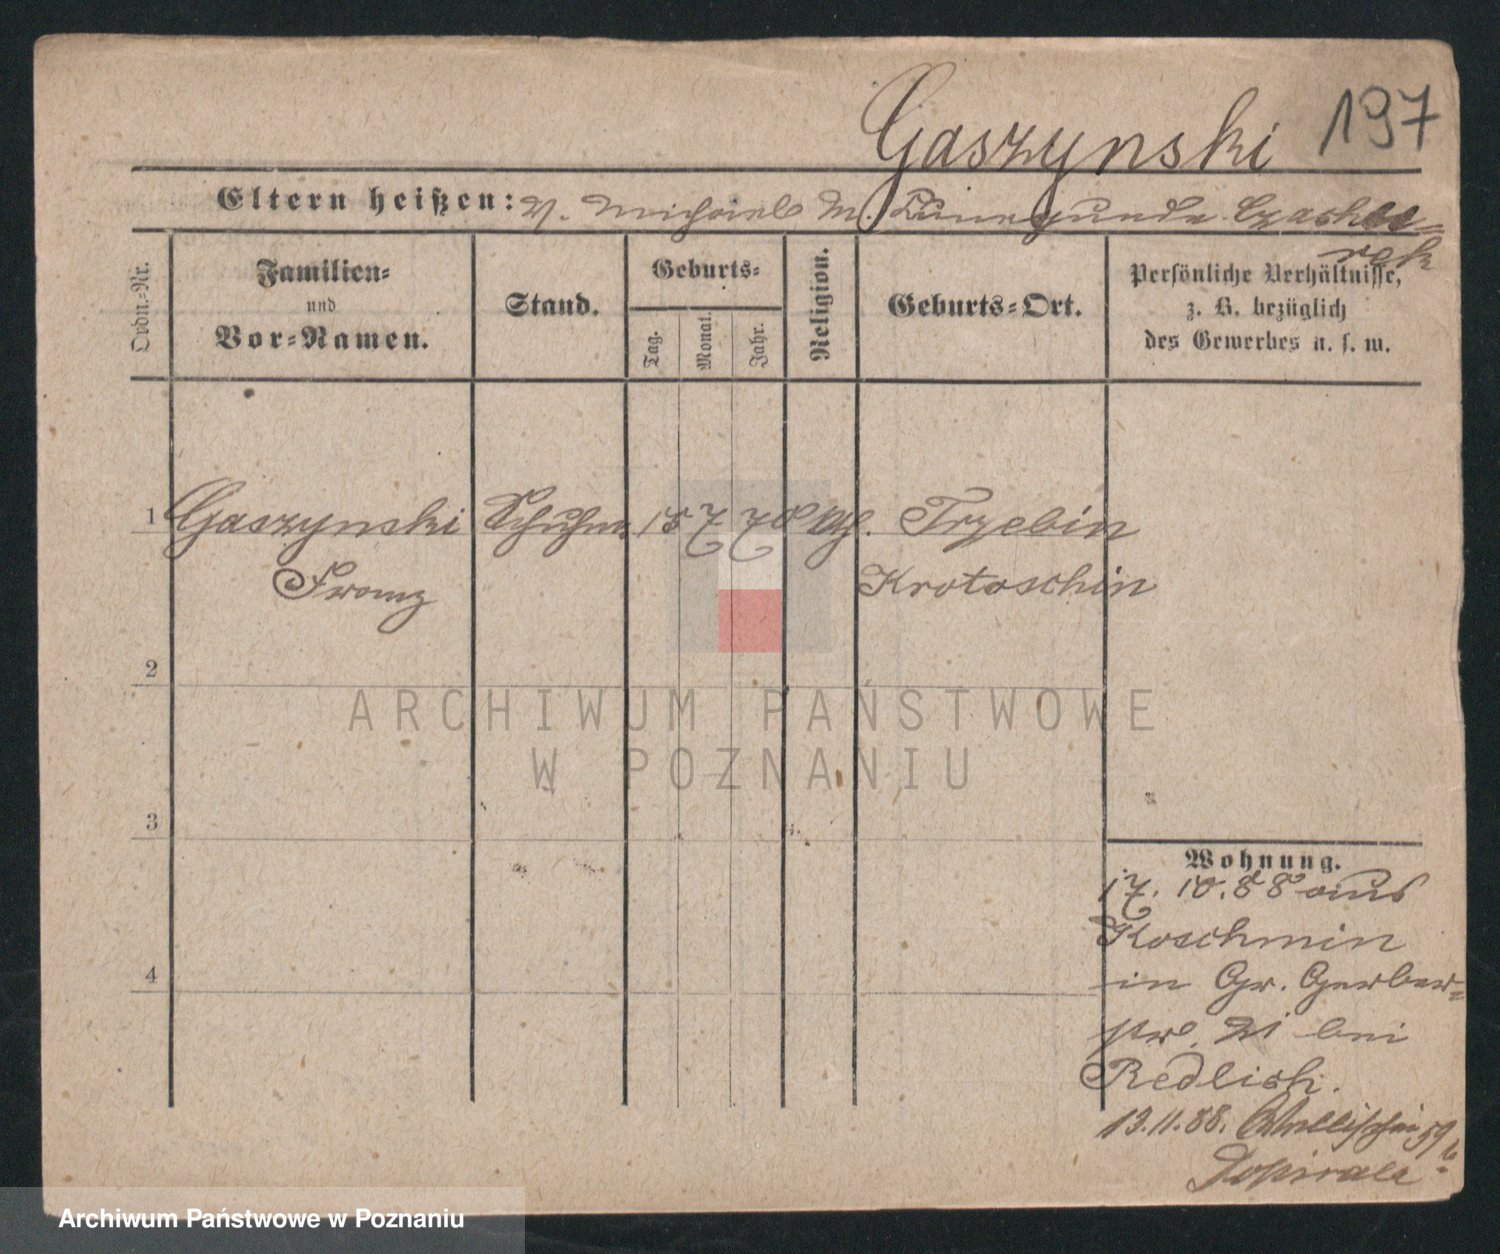 Gaszynski 197
Eltern heißen: V. Michael M. Kunegunde Czaska=
rek
Ordn.-Nr.
Familien=
und
Vor=Namen.
Stand.
Geburts=
Tag.
Monat.
Jahr.
Religion.
Geburts=Ort.
Persönliche Verhältnisse,
z. B. bezüglich
des Gewerbes u. s. w.
1 Gaszynski Schuhm. 15 7 70 kth. Trzebin
Franz Krotoschin
2
3
4
Wohnung.
17. 10. 88 aus
Koschmin
in Gr. Gerber=
str. 21 bei
Redlich.
13.11.88. Wallischei 59 b.
Sopirala
ARCHIWUM PAŃSTWOWE
W POZNANIU
Archiwum Państwowe w Poznaniu